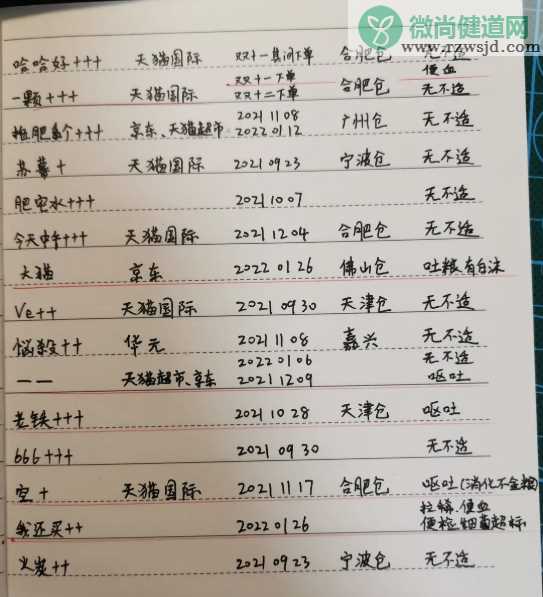 微尚健道网
www.rzwsjd.com
哈哈好+++ 天猫国际 双十一 下单 合肥仓 无不适
双十一下单 便血
一颗+++ 天猫国际 双十二下单 合肥仓 无不适
2021 11 08
个+++ 京东、天猫超市 2022 01 12 广州仓 无不适
苏 + 天猫国际 2021 09 23 宁波仓 无不适
肥宅水+++ 2021 10 07 无不适
今天中午+++ 天猫国际 2021 12 04 合肥仓 无不适
大猫 京东 2022 01 26 佛山仓 吐粮有白沫
Ve++ 天猫国际 2021 09 30 天津仓 无不适
恼毅++ 华元 2021 11 08 嘉兴 无不适
2022 01 06 无不适
一一 天猫超市、京东 2021 12 09 呕吐
老铁+++ 2021 10 28 天津仓 呕吐
666+++ 2021 09 30 无不适
空+ 天猫国际 2021 11 17 合肥仓 呕吐(消化不全粮)
拉稀、便血
我还买++ 2022 01 26 便检细菌超标
火炭++ 2021 09 23 宁波仓 无不适